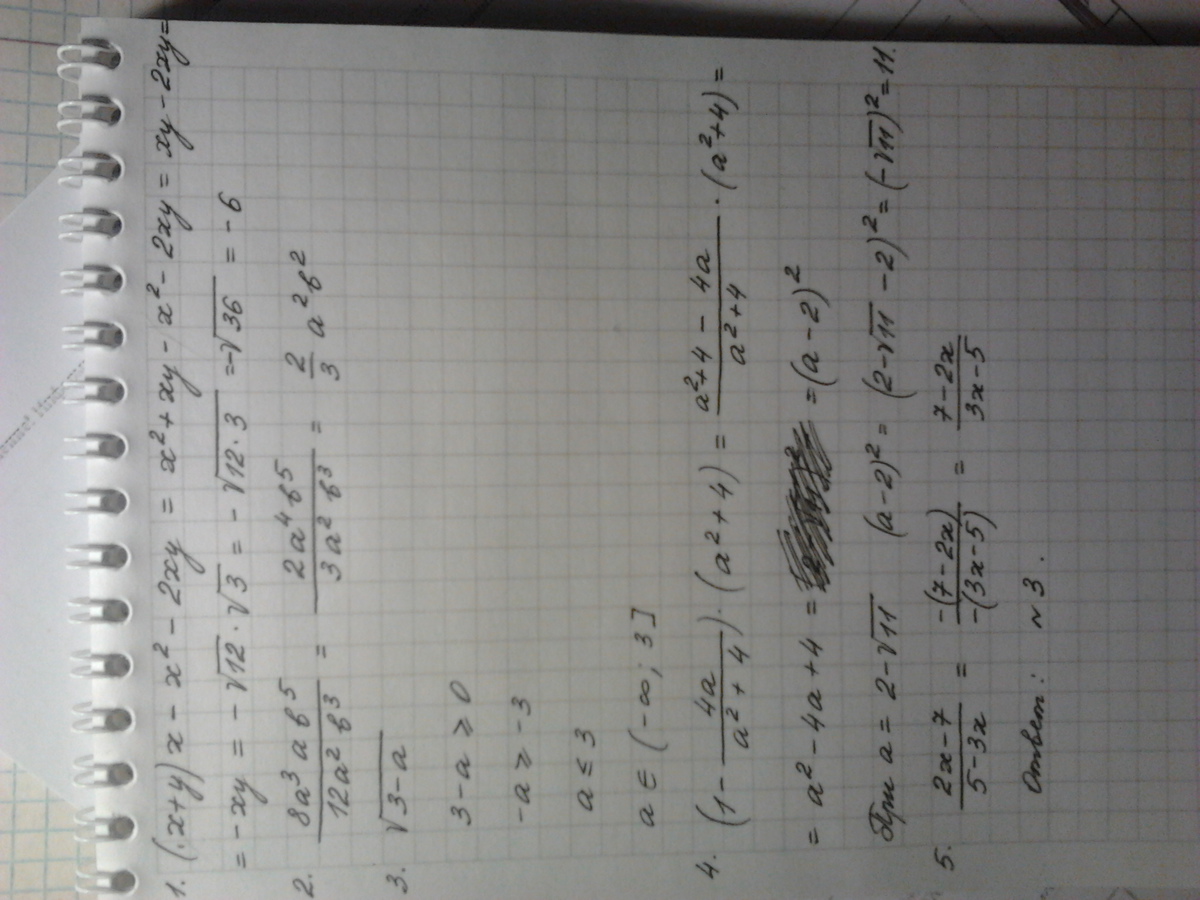 1. (x+y)x - x² - 2xy = x² + xy - x² - 2xy = xy - 2xy =
= -xy = -√12 · √3 = -√(12·3) = -√36 = -6
2. 8a³ab⁵/12a²b³ = 2a⁴b⁵/3a²b³ = 2/3 a²b²
3. √(3-a)
3-a ≥ 0
-a ≥ -3
a ≤ 3
a ∈ (-∞; 3]
4. (1 - 4a/(a²+4)) · (a²+4) = (a²+4 - 4a)/(a²+4) · (a²+4) =
= a² - 4a + 4 = = (a-2)²
При a = 2-√11 (a-2)² = (2-√11 -2)² = (-√11)² = 11.
5. (2x-7)/(5-3x) = -(7-2x)/-(3x-5) = (7-2x)/(3x-5)
Ответ: ~3.